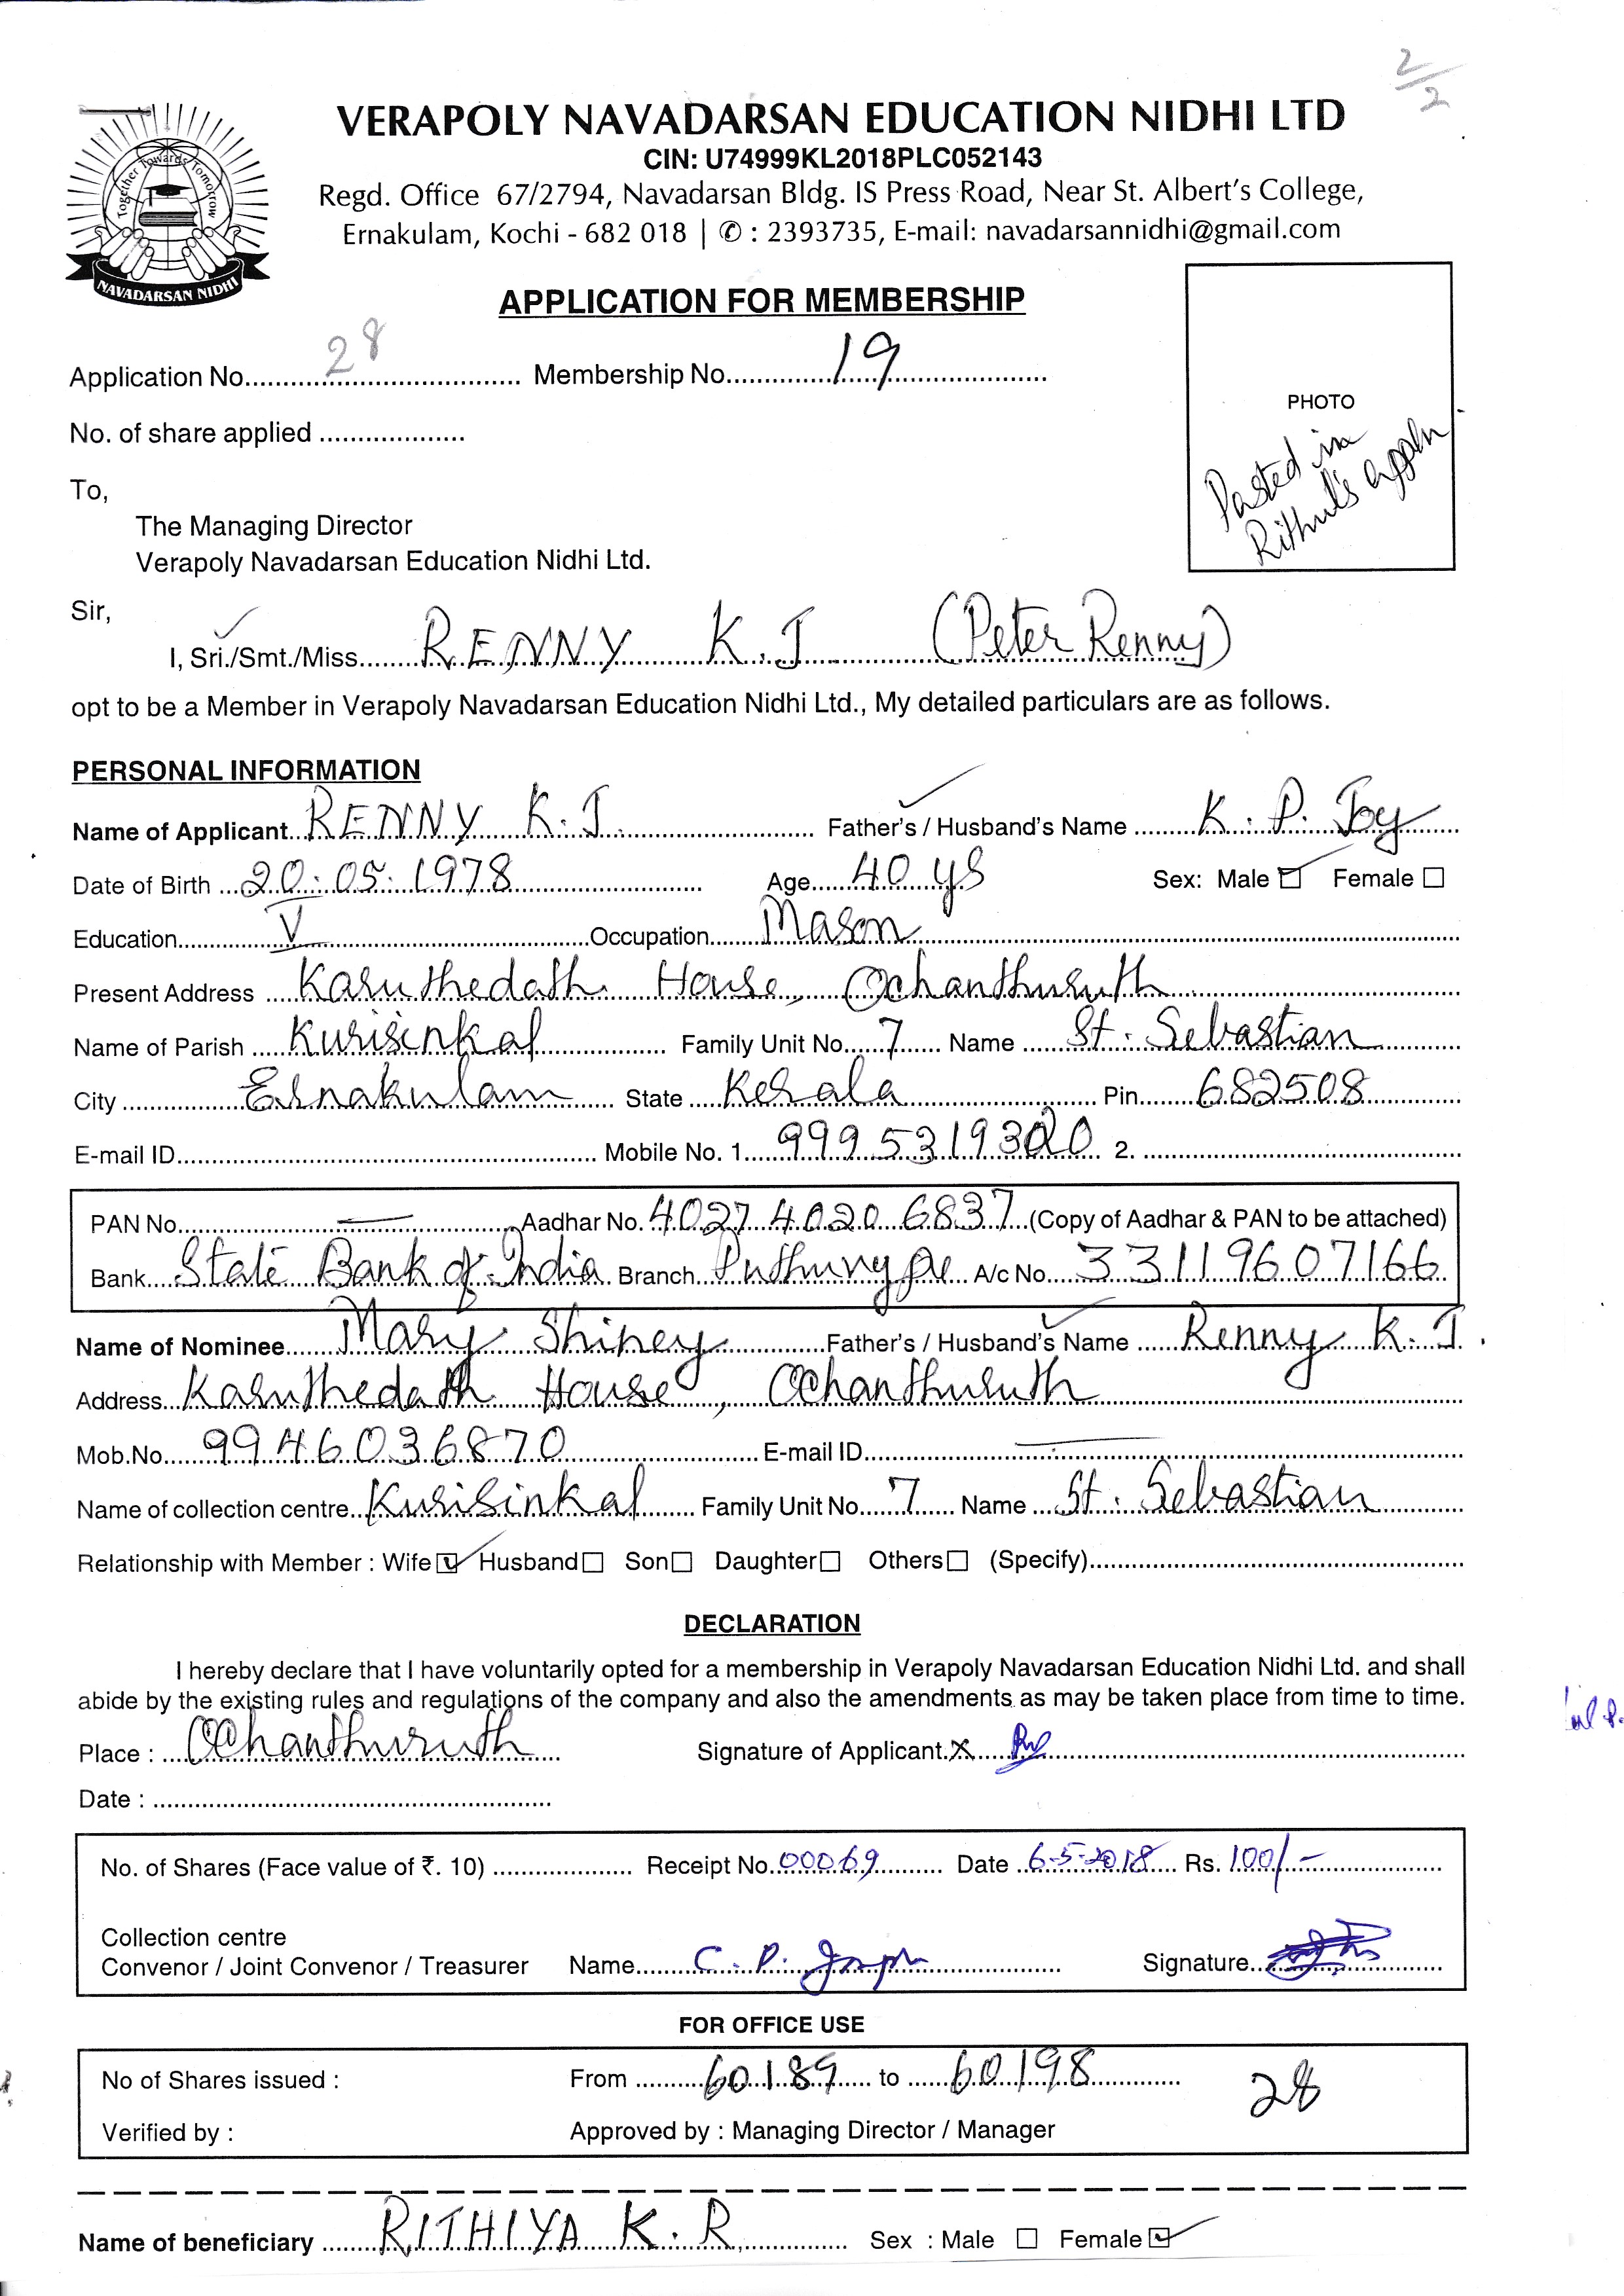 2/2
Together Towards Tomorrow
NAVADARSAN NIDHI
VERAPOLY NAVADARSAN EDUCATION NIDHI LTD
CIN: U74999KL2018PLC052143
Regd. Office 67/2794, Navadarsan Bldg. IS Press Road, Near St. Albert's College,
Ernakulam, Kochi - 682 018 | ✆ : 2393735, E-mail: navadarsannidhi@gmail.com
APPLICATION FOR MEMBERSHIP
Application No. 28 Membership No. 19
No. of share applied
PHOTO
Pasted in
Rithul's appln
To,
The Managing Director
Verapoly Navadarsan Education Nidhi Ltd.
Sir,
I, Sri./Smt./Miss RENNY K.J (Peter Renny)
opt to be a Member in Verapoly Navadarsan Education Nidhi Ltd., My detailed particulars are as follows.
PERSONAL INFORMATION
Name of Applicant RENNY K.J. Father's / Husband's Name K.P. Joy
Date of Birth 20.05.1978 Age 40 ys Sex: Male ☑ Female ☐
Education V Occupation Mason
Present Address Karuthedath House, Ochanthuruth
Name of Parish Kurisinkal Family Unit No. 7 Name St. Sebastian
City Ernakulam State Kerala Pin 682508
E-mail ID Mobile No. 1 9995319320 2.
PAN No. — Aadhar No. 4027 4020 6837 (Copy of Aadhar & PAN to be attached)
Bank State Bank of India Branch Puthuvype A/c No. 33119607166
Name of Nominee Mary Shiney Father's / Husband's Name Renny K.J.
Address Karuthedath House, Ochanthuruth
Mob.No. 9946036870 E-mail ID —
Name of collection centre Kurisinkal Family Unit No. 7 Name St. Sebastian
Relationship with Member : Wife ☑ Husband ☐ Son ☐ Daughter ☐ Others ☐ (Specify)
DECLARATION
I hereby declare that I have voluntarily opted for a membership in Verapoly Navadarsan Education Nidhi Ltd. and shall
abide by the existing rules and regulations of the company and also the amendments as may be taken place from time to time.
Place : Ochanthuruth Signature of Applicant. x
Date :
No. of Shares (Face value of ₹. 10) Receipt No. 00069 Date 6-5-2018 Rs. 100/-
Collection centre
Convenor / Joint Convenor / Treasurer Name C.P. Joseph Signature
FOR OFFICE USE
No of Shares issued : From 60189 to 60198 28
Verified by : Approved by : Managing Director / Manager
Name of beneficiary RITHIYA K.R. Sex : Male ☐ Female ☑